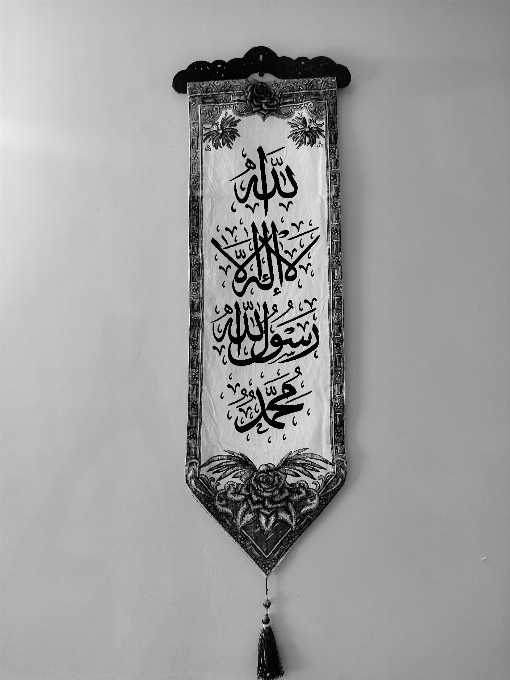 الله
لا إله إلا
رسول الله
محمد